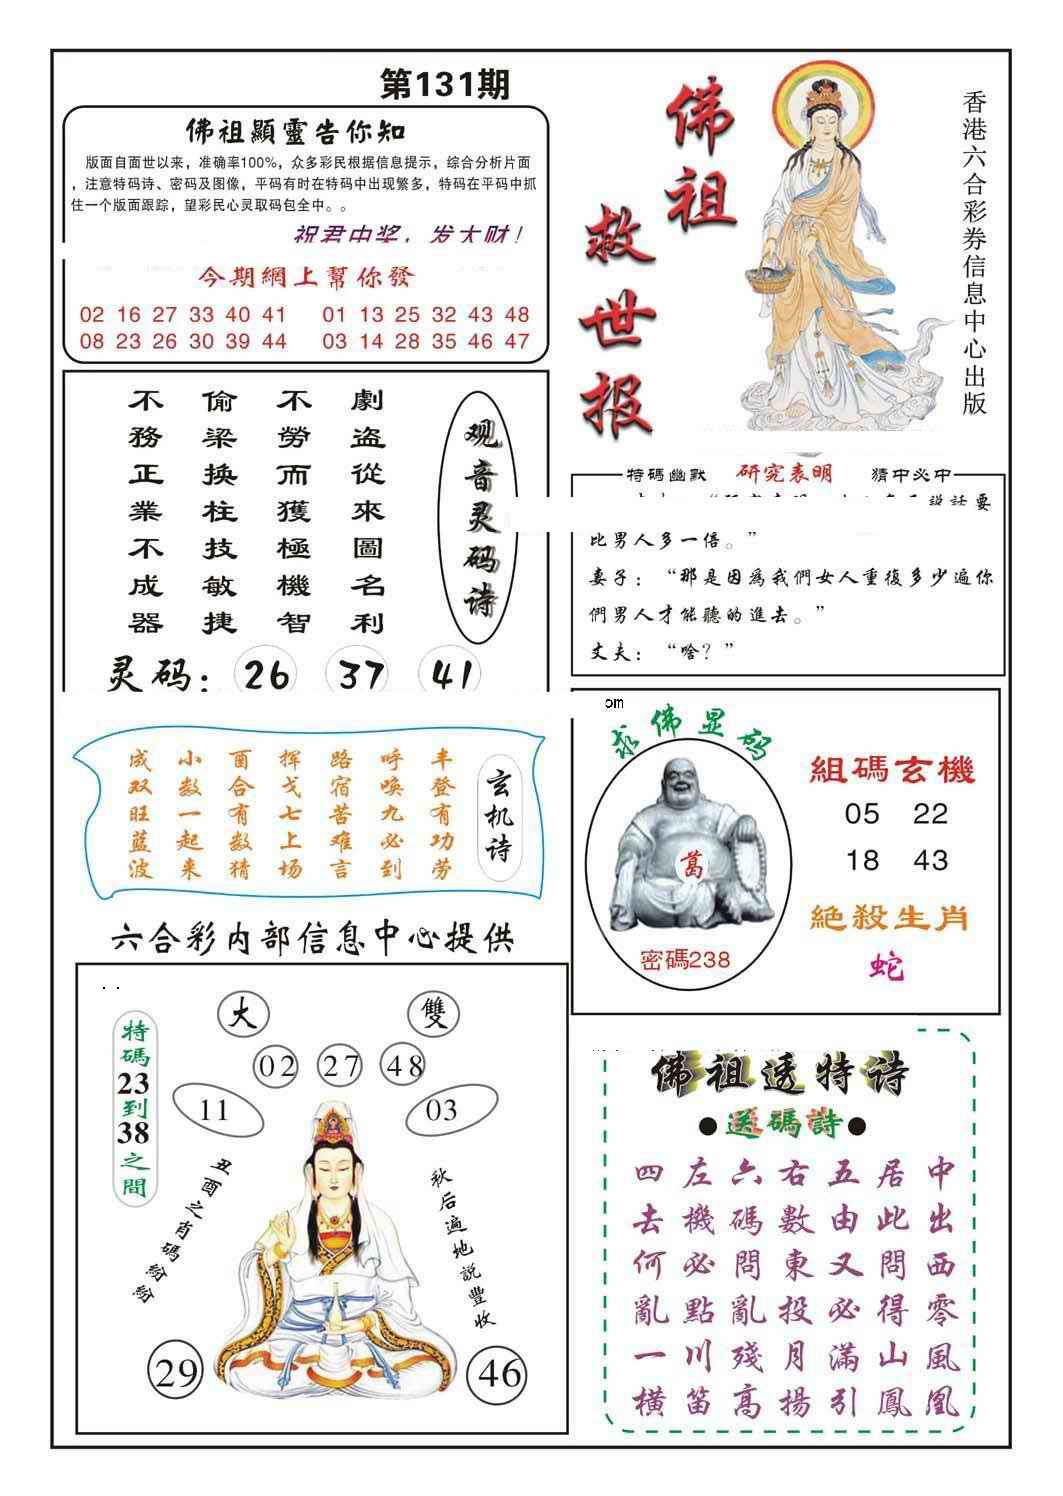 第131期
佛祖顯靈告你知
版面自面世以来，准确率100%，众多彩民根据信息提示，综合分析片面
，注意特码诗、密码及图像，平码有时在特码中出现繁多，特码在平码中抓
住一个版面跟踪，望彩民心灵取码包全中。。
祝君中奖，发大财！
今期網上幫你發
02 16 27 33 40 41 01 13 25 32 43 48
08 23 26 30 39 44 03 14 28 35 46 47
佛祖
救世报
香港六合彩券信息中心出版
观音灵码诗
劇盗從來圖名利
不勞而獲極機智
偷梁换柱技敏捷
不務正業不成器
灵码：26 37 41
特碼幽默 研究表明 猜中必中
説話要
比男人多一倍。”
妻子：“那是因為我們女人重復多少遍你
們男人才能聽的進去。”
丈夫：“啥？”
om
玄机诗
丰登有功劳
呼唤九必到
路宿苦难言
挥戈七上场
酉合有数猜
小数一起来
成双旺蓝波
求佛显码
葛
密碼238
組碼玄機
05 22
18 43
絕殺生肖
蛇
六合彩内部信息中心提供
特碼23到38之間
大 雙
02 27 48
11 03
丑酉之肖碼紛紛
秋后遍地説豐收
29 46
佛祖透特诗
●送碼詩●
中出西零風凰
居此問得山鳳
五由又必滿引
右數東投月揚
六碼問亂殘高
左機必點川笛
四去何亂一橫